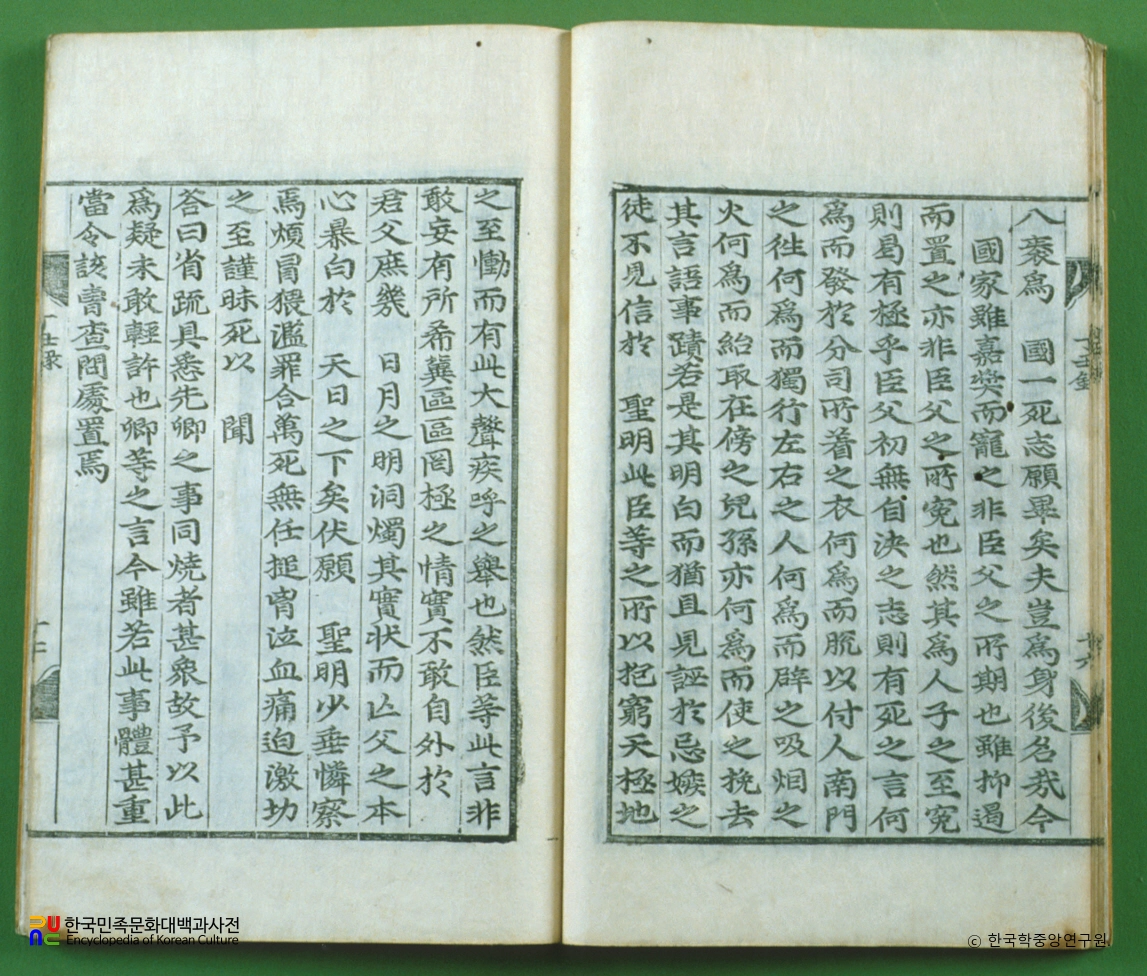 八耋爲 國一死志願畢矣夫豈爲身後名哉今
國家雖嘉奬而寵之非臣父之所期也雖抑遏
而置之亦非臣父之所寃也然其爲人子之至寃
則曷有極乎臣父初無自決之志則有死之言何
爲而發於分司所着之衣何爲而脫以付人南門
之徃何爲而獨行左右之人何爲而辟之吸烟之
火何爲而紿取在傍之兒孫亦何爲而使之挽去
其言語事蹟若是其明白而猶且見誣於忌嫉之
徒不見信於 聖明此臣等之所以抱窮天極地
之至慟而有此大聲疾呼之擧也然臣等此言非
敢妄有所希冀區區罔極之情實不敢自外於
君父庶幾 日月之明洞燭其實狀而亡父之本
心暴白於 天日之下矣伏願 聖明少垂憐察
焉煩冒猥濫罪合萬死無任搥胷泣血痛迫激切
之至謹昧死以 聞
答曰省疏具悉先卿之事同燒者甚衆故予以此
爲疑未敢輕許也卿等之言今雖若此事體甚重
當令該曹查問處置焉
한국민족문화대백과사전
Encyclopedia of Korean Culture
© 한국학중앙연구원